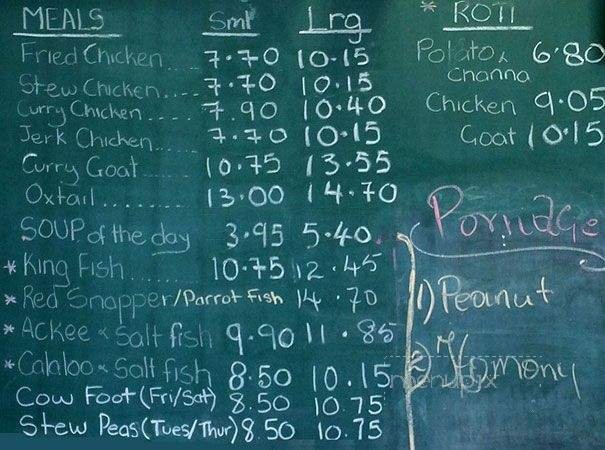 MEALS Sml Lrg
Fried Chicken.... 7.70 10.15
Stew Chicken.... 7.70 10.15
Curry Chicken.... 7.90 10.40
Jerk Chicken.... 7.70 10.15
Curry Goat..... 10.75 13.55
Oxtail........ 13.00 14.70
SOUP of the day 3.95 5.40
* King Fish...... 10.75 12.45
* Red Snapper/Parrot Fish 14.70
* Ackee & Salt fish 9.90 11.85
* Calaloo & Salt fish 8.50 10.15
Cow Foot (Fri/Sat) 8.50 10.75
Stew Peas (Tues/Thur) 8.50 10.75
* ROTI
Potato & 6.80
Channa
Chicken 9.05
Goat 10.15
Porridge
1) Peanut
2) Homony
menupix